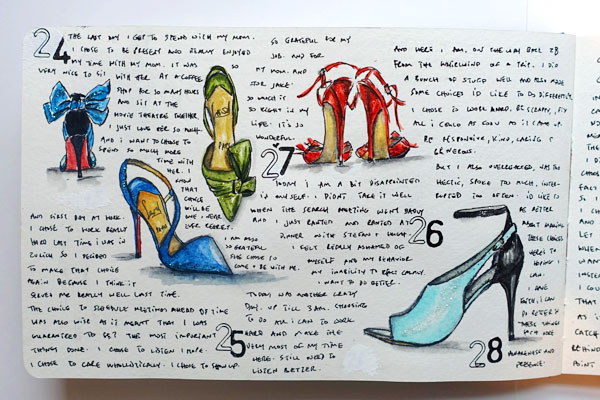 24 THE LAST DAY I GET TO SPEND WITH MY MOM.
I CHOSE TO BE PRESENT AND REALLY ENJOYED
MY TIME WITH MY MOM. IT WAS
VERY NICE TO SIT WITH HER AT A COFFEE
SHOP FOR SO MANY HOURS
AND SIT AT THE
MOVIE THEATRE TOGETHER
I JUST LOVE HER SO MUCH.
AND I WANT TO CHOOSE TO
SPEND SO MUCH MORE
TIME WITH
HER. I
KNOW
THAT
CHOICE
WILL BE
ONE I NEVER
EVER REGRET.
I AM ALSO
SO GRATEFUL
SHE CHOSE TO
COME & BE WITH ME.
AND FIRST DAY AT WORK.
I CHOSE TO WORK REALLY
HARD LAST TIME I WAS IN
ZURICH SO I DECIDED
TO MAKE THAT CHOICE
AGAIN BECAUSE I THINK IT
SERVED ME REALLY WELL LAST TIME.
THE CHOICE TO SCHEDULE MEETINGS AHEAD OF TIME
WAS ALSO WISE AS IT MEANT THAT I WAS
GUARANTEED TO GET THE MOST IMPORTANT
THINGS DONE. I CHOSE TO LISTEN MORE.
I CHOSE TO CARE WHOLISTICALLY. I CHOSE TO SHOW UP.
25
SO GRATEFUL FOR MY
SO JOB AND FOR
MY MOM. AND
FOR JAKE.
SO MUCH IS
SO RIGHT IN MY
LIFE. IT'S SO
WONDERFUL.
27
TODAY I AM A BIT DISAPPOINTED
IN MYSELF. I DIDN'T TAKE IT WELL
WHEN THE SEARCH MEETING WENT BADLY
AND I JUST RANTED AND RANTED AT
DINNER WITH STEFAN &
I FELT REALLY ASHAMED OF
MYSELF AND MY BEHAVIOR
MY INABILITY TO REACT CALMLY.
I WANT TO DO BETTER.
TODAY WAS ANOTHER CRAZY
DAY. UP TILL 3AM. CHOOSING
TO DO ALL I CAN TO WORK
HARD AND MAKE THE
VERY MOST OF MY TIME
HERE. STILL NEED TO
LISTEN BETTER.
26
AND HERE I AM, ON THE WAY BACK 28
FROM THE WHIRLWIND OF A TRIP. I DID
A BUNCH OF STUFF WELL AND ALSO MADE
SOME CHOICES I'D LIKE TO DO DIFFERENTLY.
I CHOSE TO WORK HARD, BE SCRAPPY, FIX
ALL I COULD AS SOON AS IT CAME UP.
BE RESPONSIVE, KIND, CARING &
GENEROUS.
BUT I ALSO OVERREACTED, WAS TOO
HECTIC, SPOKE TOO MUCH, INTER-
RUPTED TOO OFTEN. I'D LIKE TO
BE BETTER
ABOUT MAKING
THESE CHOICES
HERE'S TO
HOPING I
CAN.
I HAVE
FAITH I CAN
DO BETTER
THESE THINGS
WITH MORE
AWARENESS AND
PRESENCE.
28